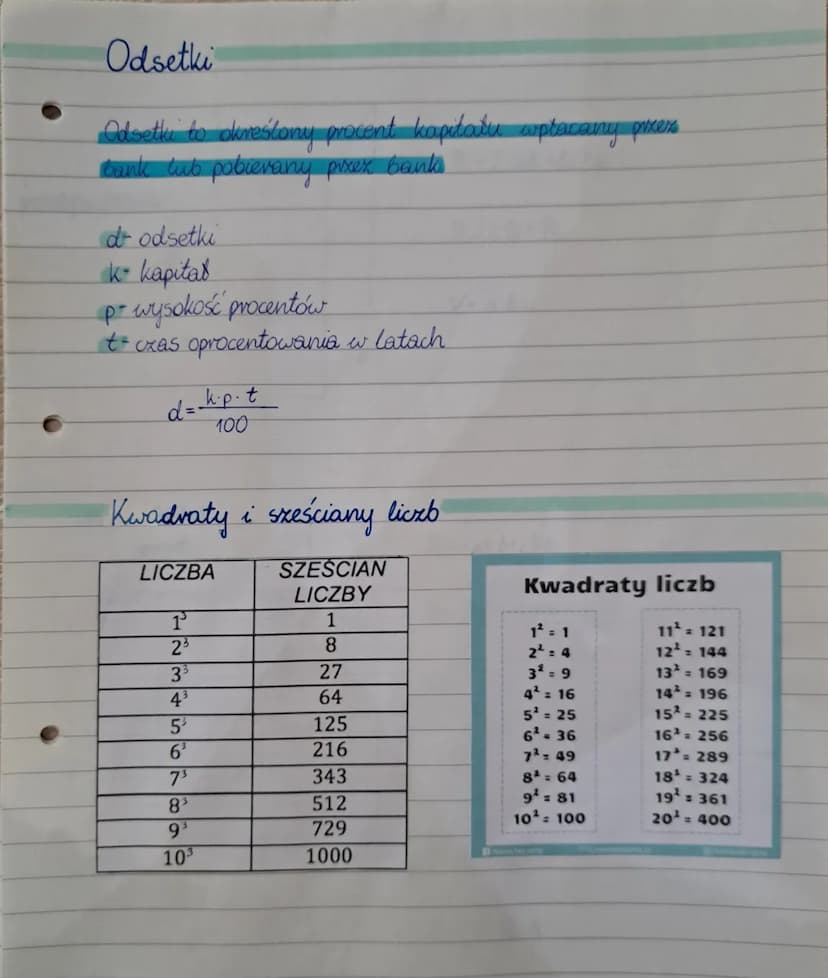 Odsetki
Odsetki to określony procent kapitału wpłacany przez
bank lub pobierany przez bank
d- odsetki
k- kapitał
p- wysokość procentów
t- czas oprocentowania w latach
d= k·p·t / 100
Kwadraty i sześciany liczb
LICZBA SZEŚCIAN LICZBY
1³ 1
2³ 8
3³ 27
4³ 64
5³ 125
6³ 216
7³ 343
8³ 512
9³ 729
10³ 1000
Kwadraty liczb
1² = 1
2² = 4
3² = 9
4² = 16
5² = 25
6² = 36
7² = 49
8² = 64
9² = 81
10² = 100
11² = 121
12² = 144
13² = 169
14² = 196
15² = 225
16² = 256
17² = 289
18² = 324
19² = 361
20² = 400